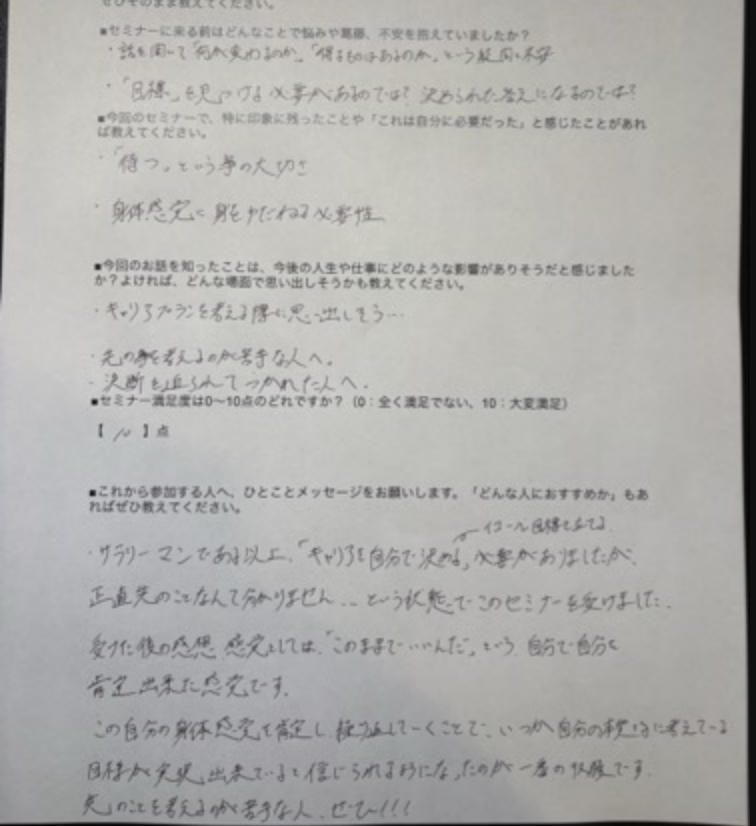 ぜひそのまま教えてください。
■セミナーに来る前はどんなことで悩みや葛藤、不安を抱えていましたか？
・話を聞いて「何が変わるのか」「得るものはあるのか」という疑問・不安
・「目標」を見つける必要があるのでは？ 決められた答えになるのでは？
■今回のセミナーで、特に印象に残ったことや「これは自分に必要だった」と感じたことがあれ
ば教えてください。
・「待つ」という事の大切さ
・身体感覚に身をゆだねる必要性
■今回のお話を知ったことは、今後の人生や仕事にどのような影響がありそうだと感じました
か？よければ、どんな場面で思い出しそうかも教えてください。
・キャリアプランを考える際に思い出しそう…
・先の事を考えるのが苦手な人へ。
・決断を迫られてつかれた人へ。
■セミナー満足度は0〜10点のどれですか？（0：全く満足でない、10：大変満足）
【 10 】点
■これから参加する人へ、ひとことメッセージをお願いします。「どんな人におすすめか」もあ
ればぜひ教えてください。
イコール目標を立てる
・サラリーマンである以上、「キャリアを自分で決める」必要がありましたが、
正直先のことなんて分かりません… という状態でこのセミナーを受けました。
受けた後の感想 感覚としては、「このままでいいんだ」という 自分で自分を
肯定出来た感覚です。
この自分の身体感覚を肯定し、していくことで、いつか自分の考えている
目標が実現出来ていると信じられるようになったのが一番の体験です。
先のことを考えるのが苦手な人、ぜひ！！！